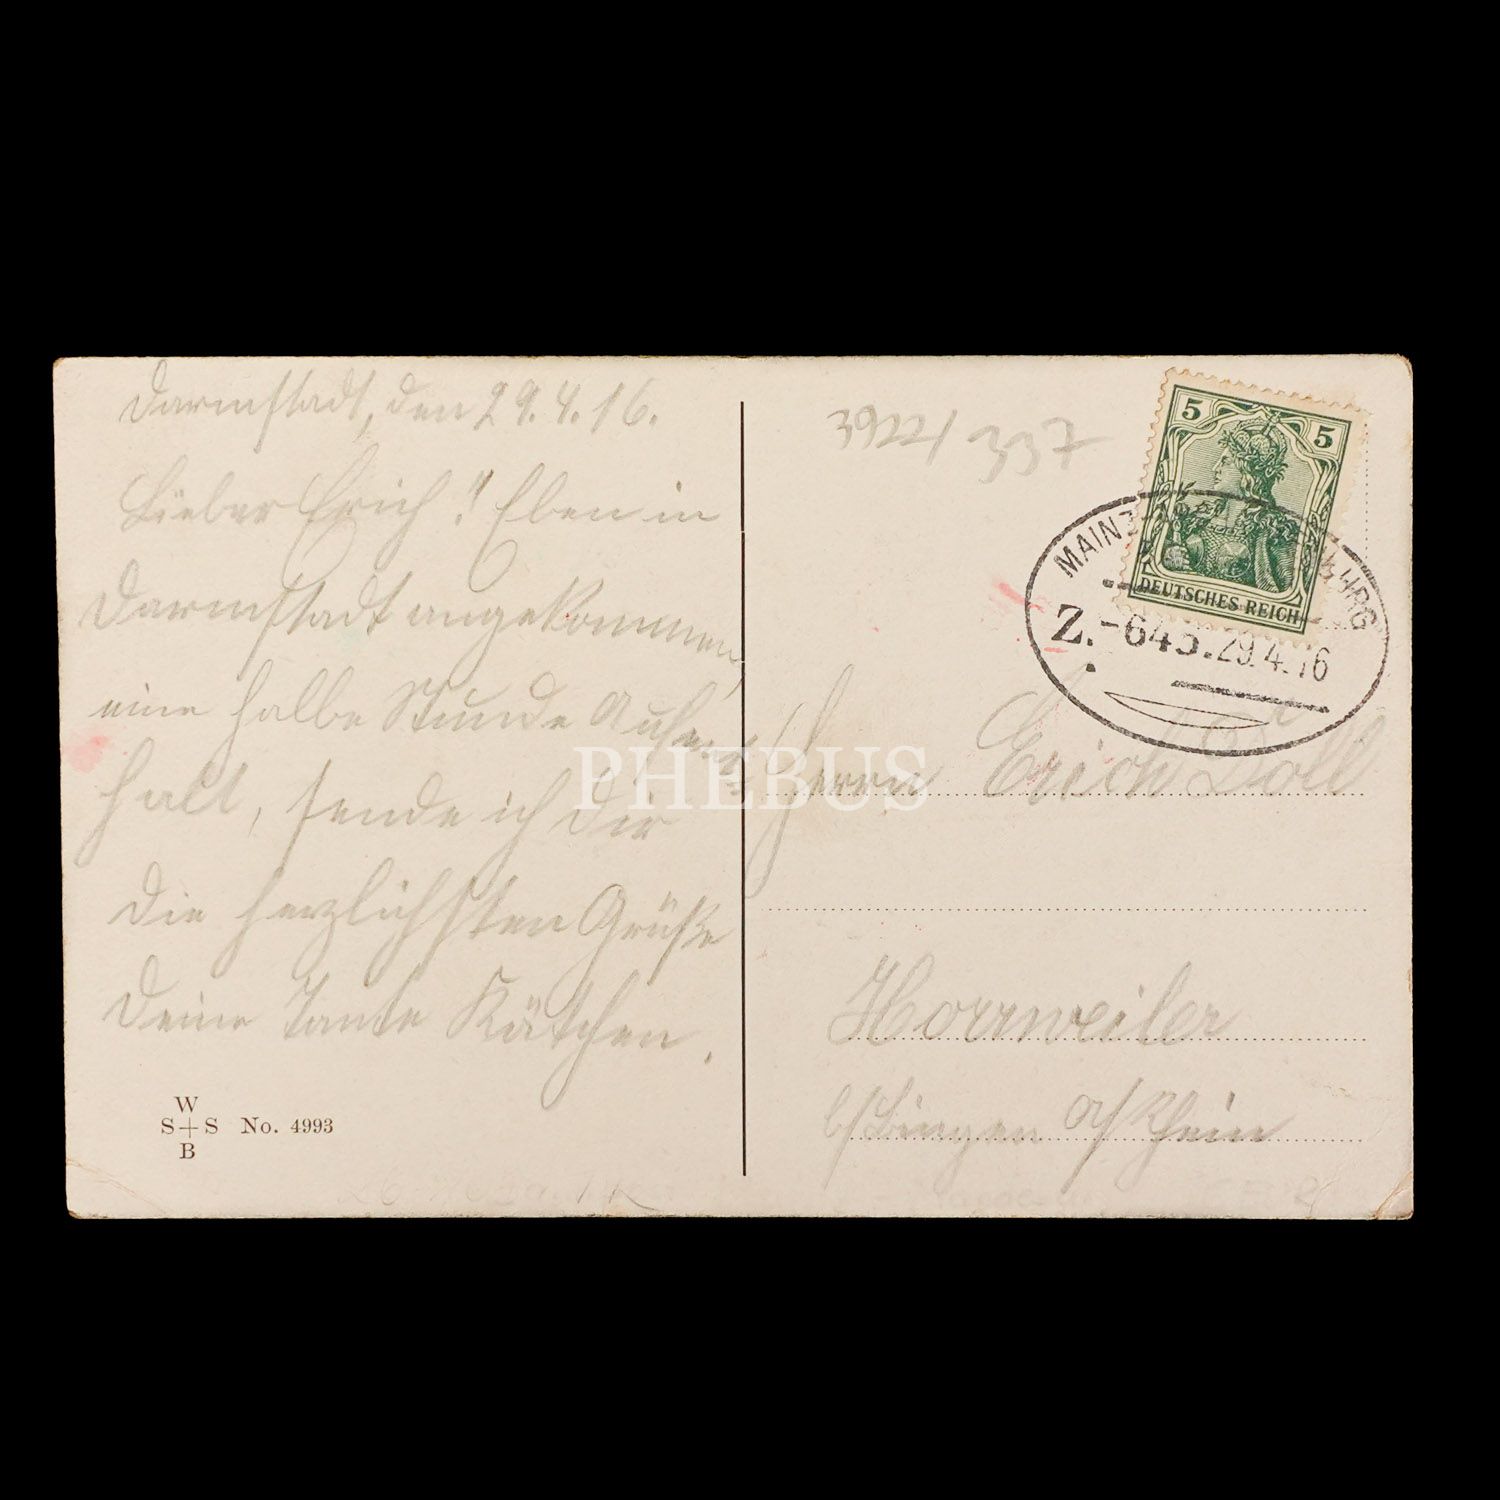 Darmstadt, den 29.4.16.
Lieber Erich! Eben in
Darmstadt angekommen,
eine halbe Stunde Aufent-
halt, sende ich Dir
die herzlichsten Grüße
Deine Tante Käthchen.
W
S+S No. 4993
B
3922/ 337
5 5
DEUTSCHES REICH
MAINZ
Z. 645. 29.4.16
Herrn Erich Doll
Horrweiler
b/Bingen a/Rhein
PHEBUS